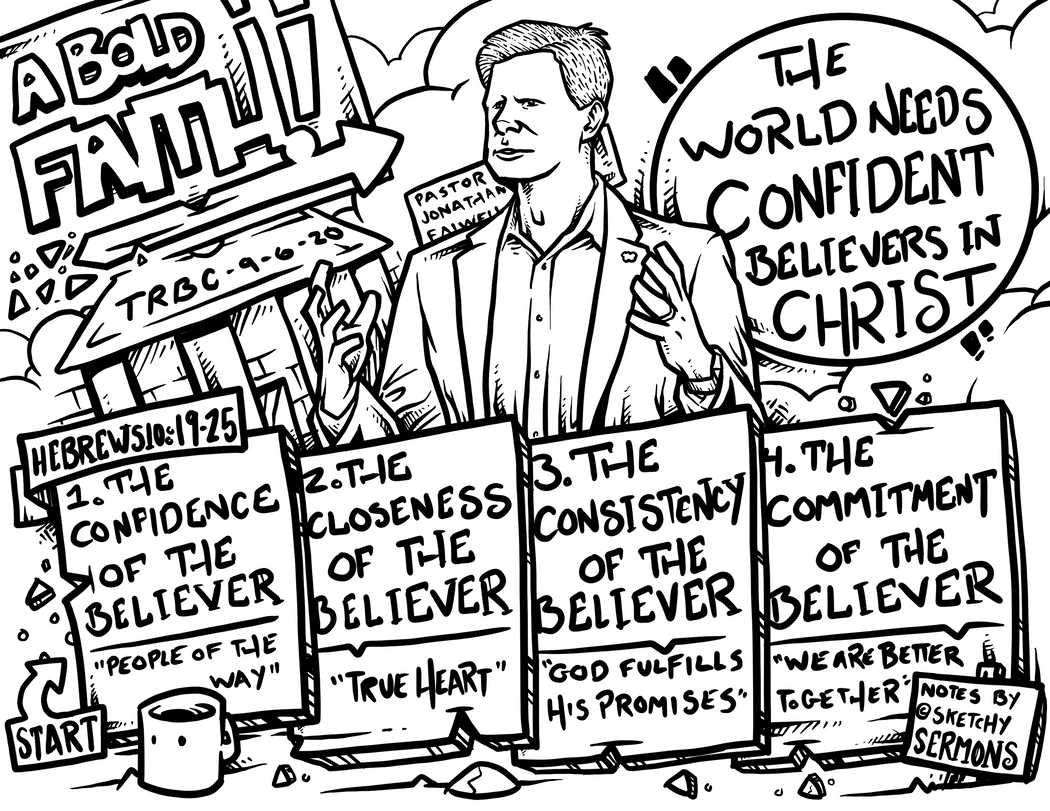 A BOLD
FAITH!!
TRBC-9-6-20
PASTOR
JONATHAN
FALWELL
"THE
WORLD NEEDS
CONFIDENT
BELIEVERS IN
CHRIST"
HEBREWS 10:19-25
1. THE
CONFIDENCE
OF THE
BELIEVER
"PEOPLE OF THE
WAY"
2. THE
CLOSENESS
OF THE
BELIEVER
"TRUE HEART"
3. THE
CONSISTENCY
OF THE
BELIEVER
"GOD FULFILLS
HIS PROMISES"
4. THE
COMMITMENT
OF THE
BELIEVER
"WE ARE BETTER
TOGETHER"
START
NOTES BY
@SKETCHY
SERMONS